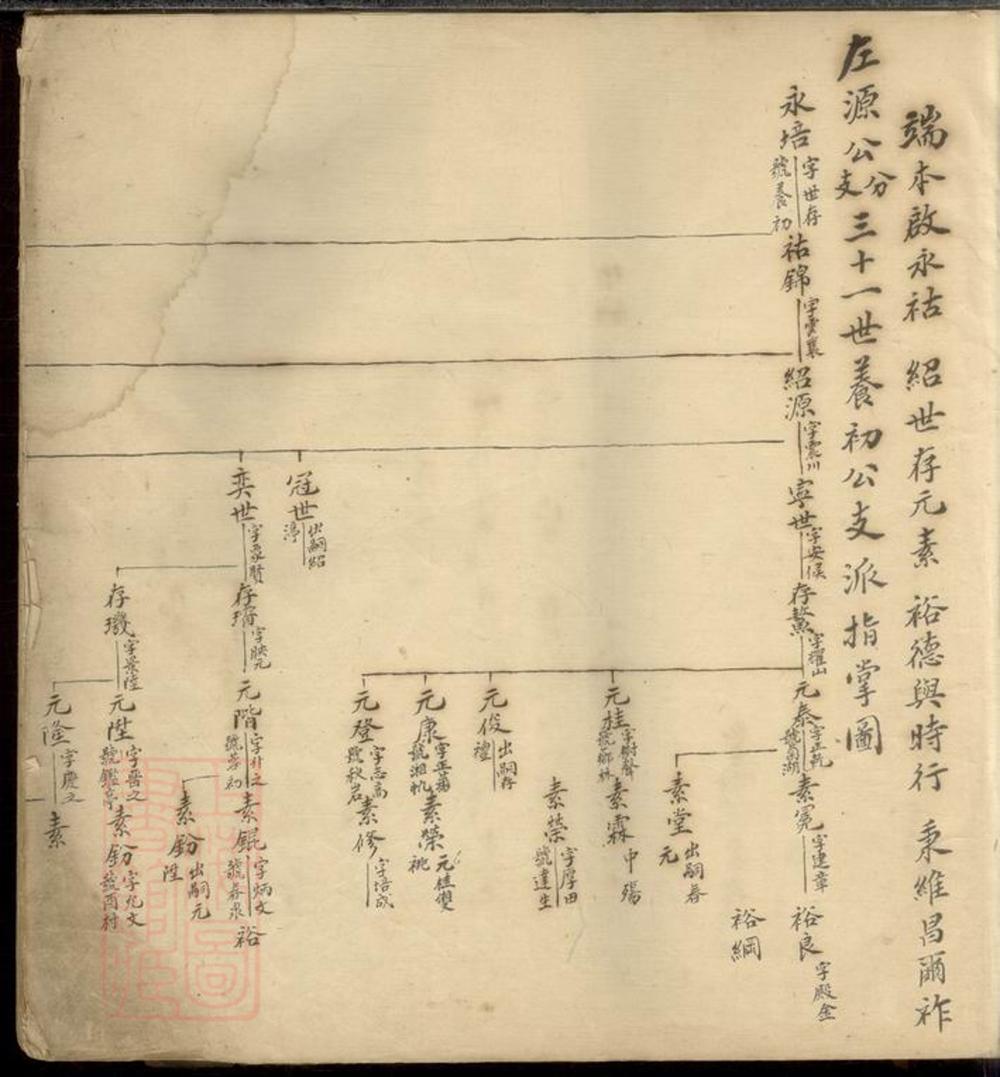 端本啟永祜 紹世存元素 裕德與時行 秉維昌爾祚
左源公分支三十一世養初公支派指掌圖
永培 字世存 號養初
祜錦 字雲襄
紹源 字震川
寧世 字安侯
存鰲 字耀山
元泰 字正乾
素冕 字建章
裕良 字殿金
裕綱
素堂 出嗣春元
元桂 字尉聲 號鄉林
素霖 中殤
素榮 字厚田 號達生
元俊 出嗣存禮
元康 字正蕃 號湘帆
素榮 元桂雙祧
元登 字志高 號秋岩
素修 字培成
冠世 出嗣紹渟
奕世 字象賢
存璿 字映元
元階 字升之 號蓉初
素錕 字炳文 號春泉
裕
素鈖 出嗣元陞
存璣 字景陸
元陞 字晉之 號鑑亭
素鈖 字允文 號雨村
元隆 字慶之
素